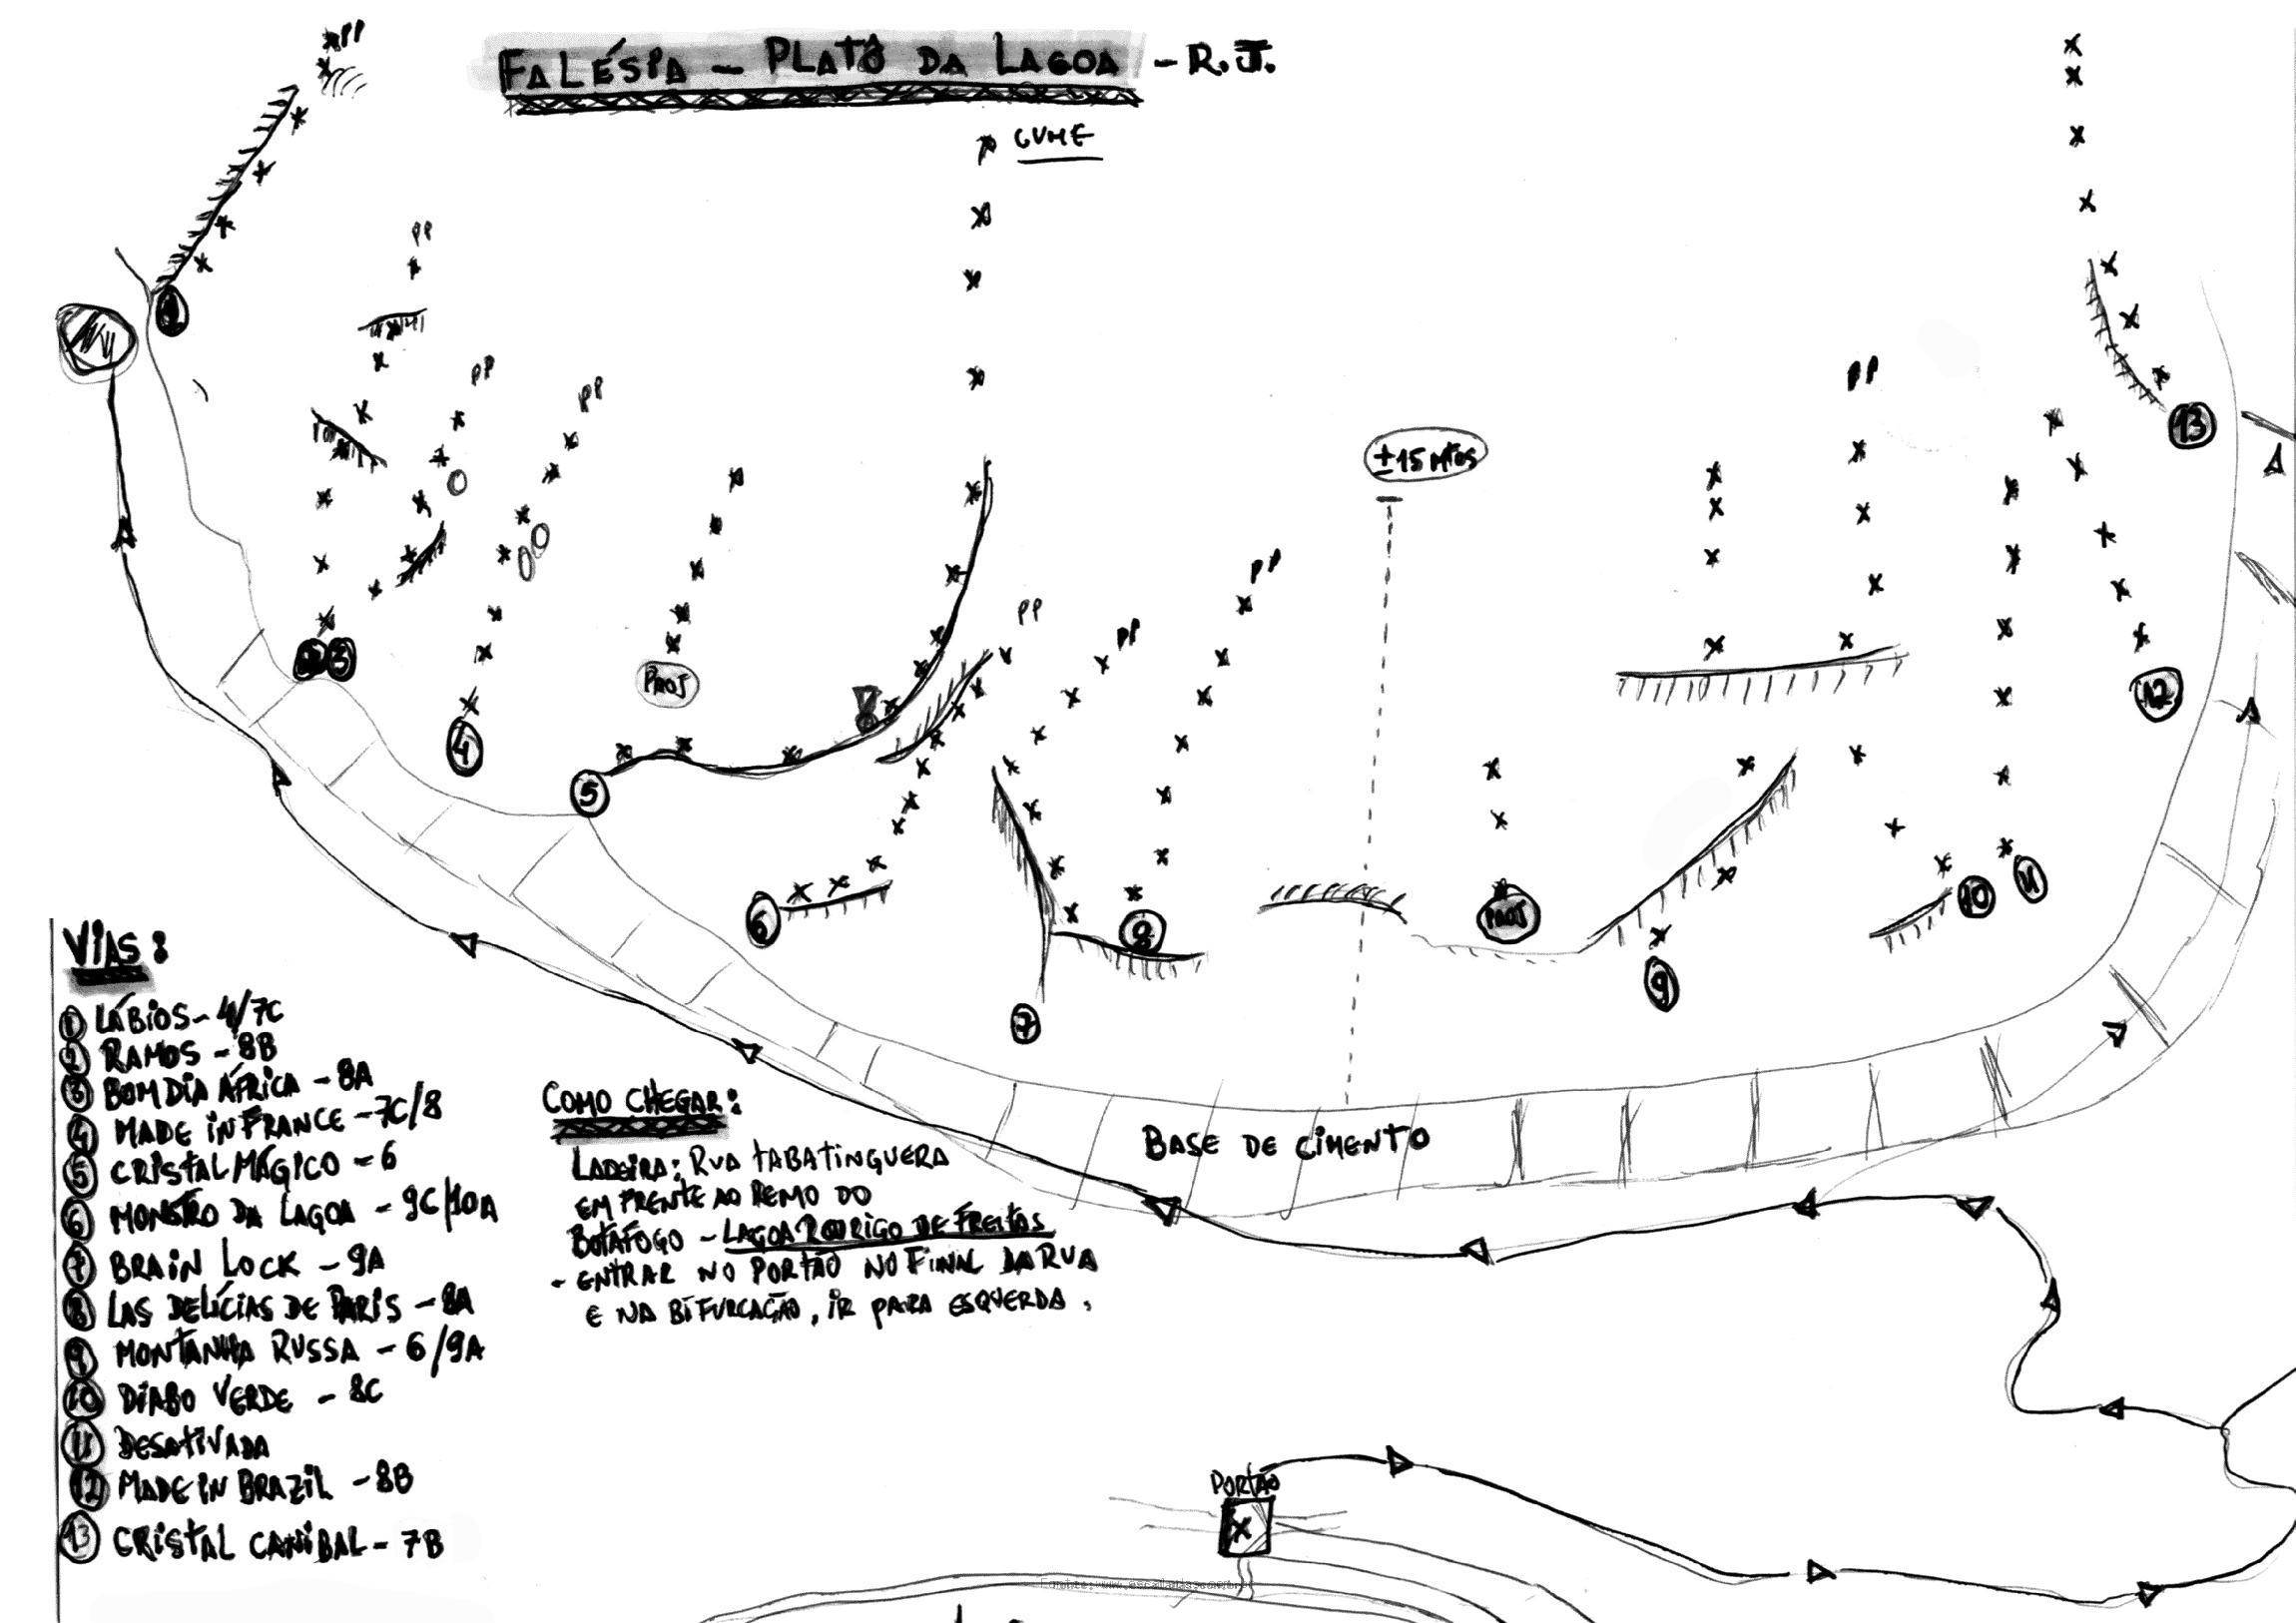 FALÉSIA - PLATÔ DA LAGOA - R.J.
PP
CUME
PP
PP
PP
PP
±15 MTOS
PP
PP
PP
PP
1
2
3
4
5
6
7
8
9
10
11
12
13
PROJ
PROJ
VIAS:
1 LÁBIOS - 4/7C
2 RAMOS - 8B
3 BOM DIA ÁFRICA - 8A
4 MADE IN FRANCE - 7C/8
5 CRISTAL MÁGICO - 6
6 MONSTRO DA LAGOA - 9C/10A
7 BRAIN LOCK - 9A
8 LAS DELÍCIAS DE PARIS - 8A
9 MONTANHA RUSSA - 6/9A
10 DIABO VERDE - 8C
11 DESATIVADA
12 MADE IN BRAZIL - 8B
13 CRISTAL CANIBAL - 7B
COMO CHEGAR:
LADEIRA: RUA TABATINGUERA
EM FRENTE AO REMO DO
BOTAFOGO - LAGOA RODRIGO DE FREITAS
- ENTRAR NO PORTÃO NO FINAL DA RUA
E NA BIFURCAÇÃO, IR PARA ESQUERDA.
BASE DE CIMENTO
PORTÃO